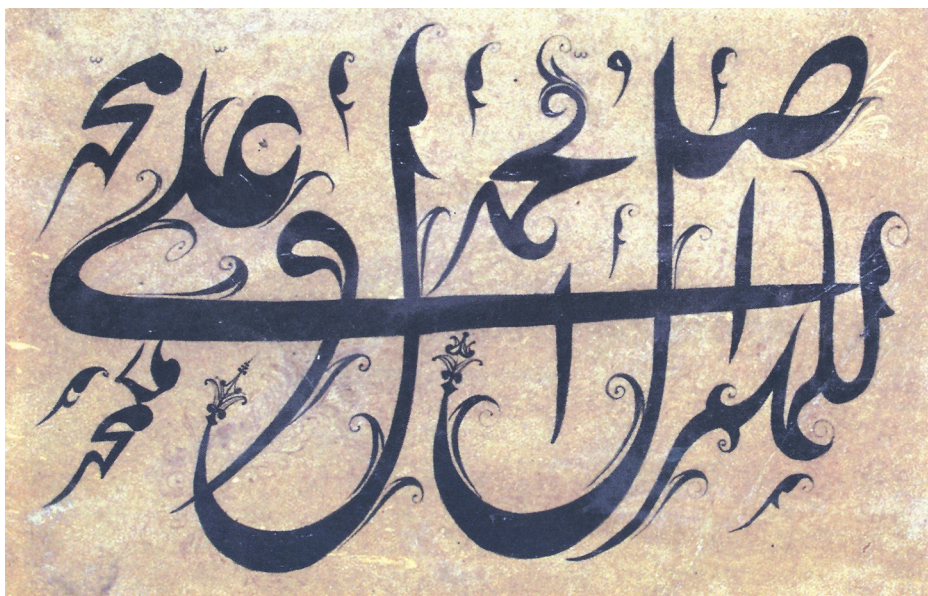 اللهم صل على محمد و آل محمد